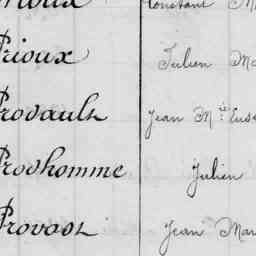 Constant M
Prioux Julien Ma
Provault Jean M.ie Euse
Prodhomme Julien
Provost Jean Mari